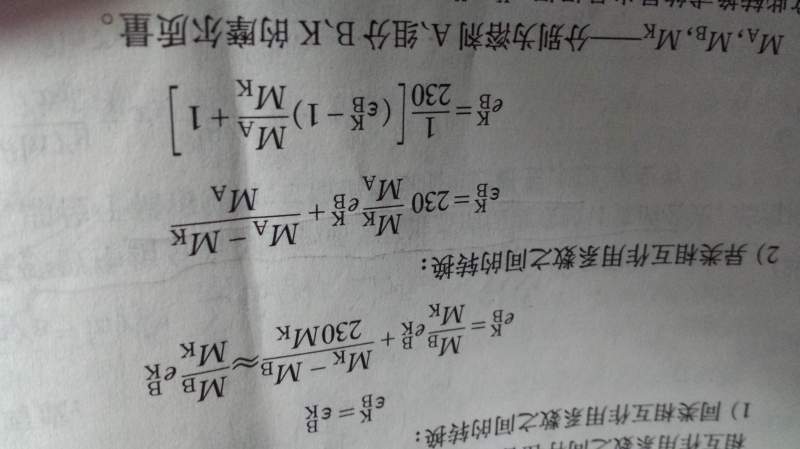 相互作用系数之间
1）同类相互作用系数之间的转换：
ε_B^K = ε_K^B
e_B^K = \frac{M_B}{M_K} e_K^B + \frac{M_K − M_B}{230M_K} ≈ \frac{M_B}{M_K} e_K^B
2）异类相互作用系数之间的转换：
ε_B^K = 230 \frac{M_K}{M_A} e_B^K + \frac{M_A − M_K}{M_A}
e_B^K = \frac{1}{230} [ (ε_B^K − 1) \frac{M_A}{M_K} + 1 ]
M_A，M_B，M_K——分别为溶剂 A、组分 B、K 的摩尔质量。